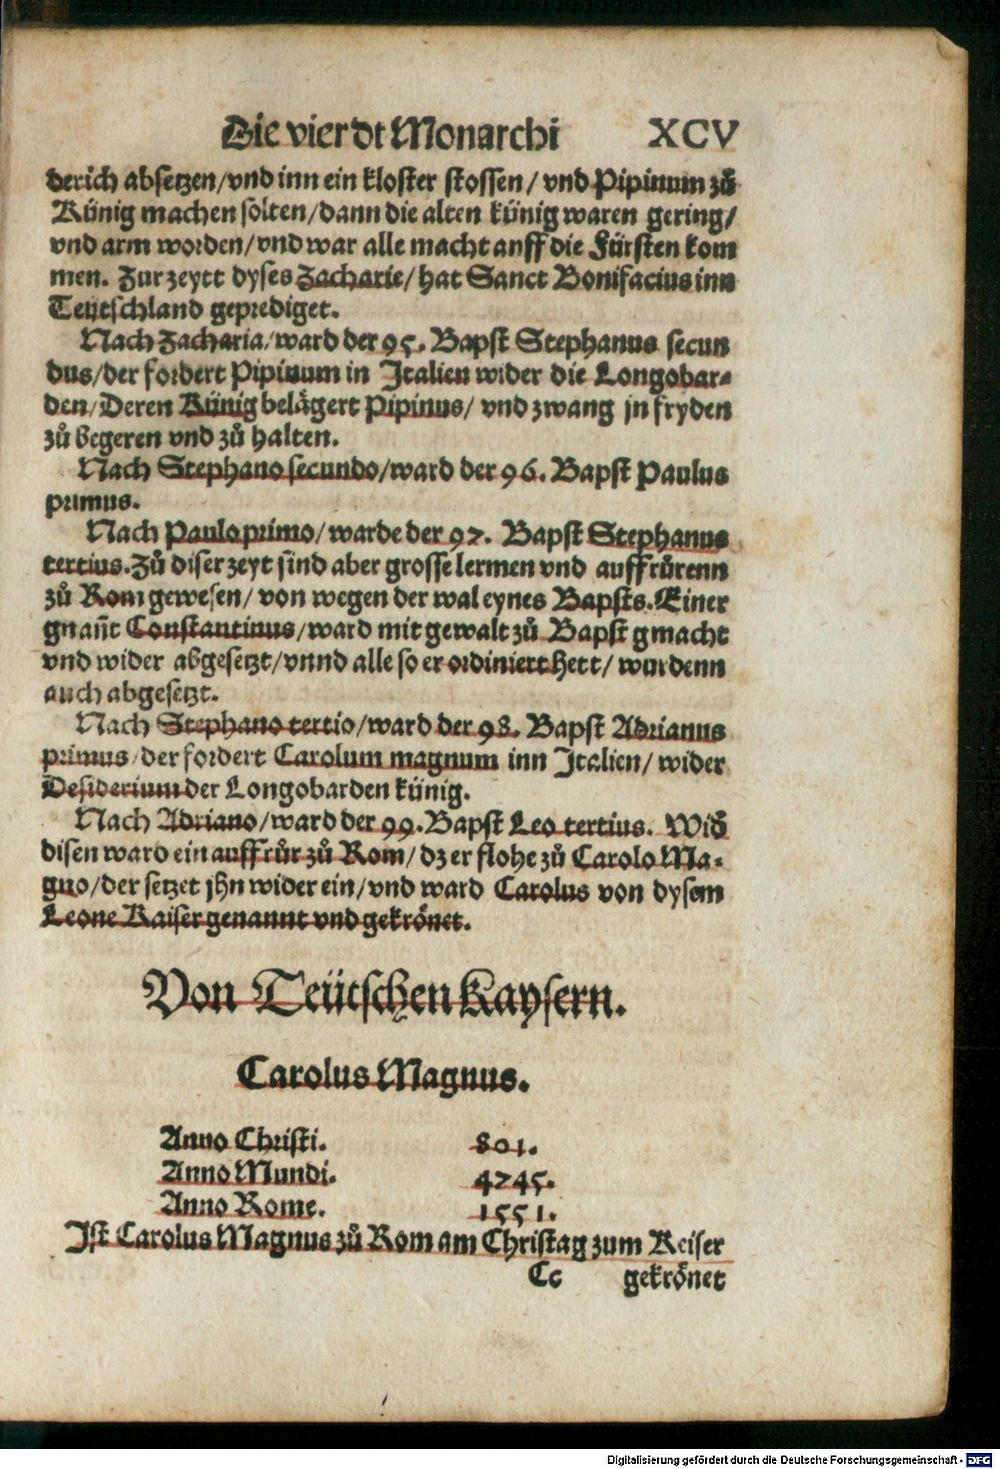 Die vierdt Monarchi XCV
derich absetzen/vnd inn ein kloster stossen/ vnd Pipinum zů
Künig machen solten/dann die alten künig waren gering/
vnd arm worden/vnd war alle macht anff die Fürsten kom
men. Zur zeytt dyses Zacharie/ hat Sanct Bonifacius inn
Teütschland geprediget.
Nach Zacharia/ward der 95. Bapst Stephanus secun
dus/der fordert Pipinum in Italien wider die Longobar-
den/Deren Künig belägert Pipinus/ vnd zwang jn fryden
zů begeren vnd zů halten.
Nach Stephano secundo/ward der 96. Bapst Paulus
primus.
Nach Paulo primo/ warde der 97. Bapst Stephanus
tertius. Zů diser zeyt sind aber grosse lermen vnd auffrůrenn
zů Rom gewesen/ von wegen der wal eynes Bapsts. Einer
gnañt Constantinus/ward mit gewalt zů Bapst gmacht
vnd wider abgesetzt/vnnd alle so er ordiniert hett/ wurdenn
auch abgesetzt.
Nach Stephano tertio/ward der 98. Bapst Adrianus
primus/der fordert Carolum magnum inn Italien/ wider
Desiderium der Longobarden künig.
Nach Adriano/ward der 99. Bapst Leo tertius. Wid̃
disen ward ein auffrůr zů Rom/ dz er flohe zů Carolo Ma-
gno/der setzet jhn wider ein/vnd ward Carolus von dysem
Leone Kaiser genannt vnd gekrönet.
Von Teütschen Kaysern.
Carolus Magnus.
Anno Christi. 801.
Anno Mundi. 4745.
Anno Rome. 1551.
Ist Carolus Magnus zů Rom am Christag zum Keiser
Cc gekrönet
Digitalisierung gefördert durch die Deutsche Forschungsgemeinschaft - DFG